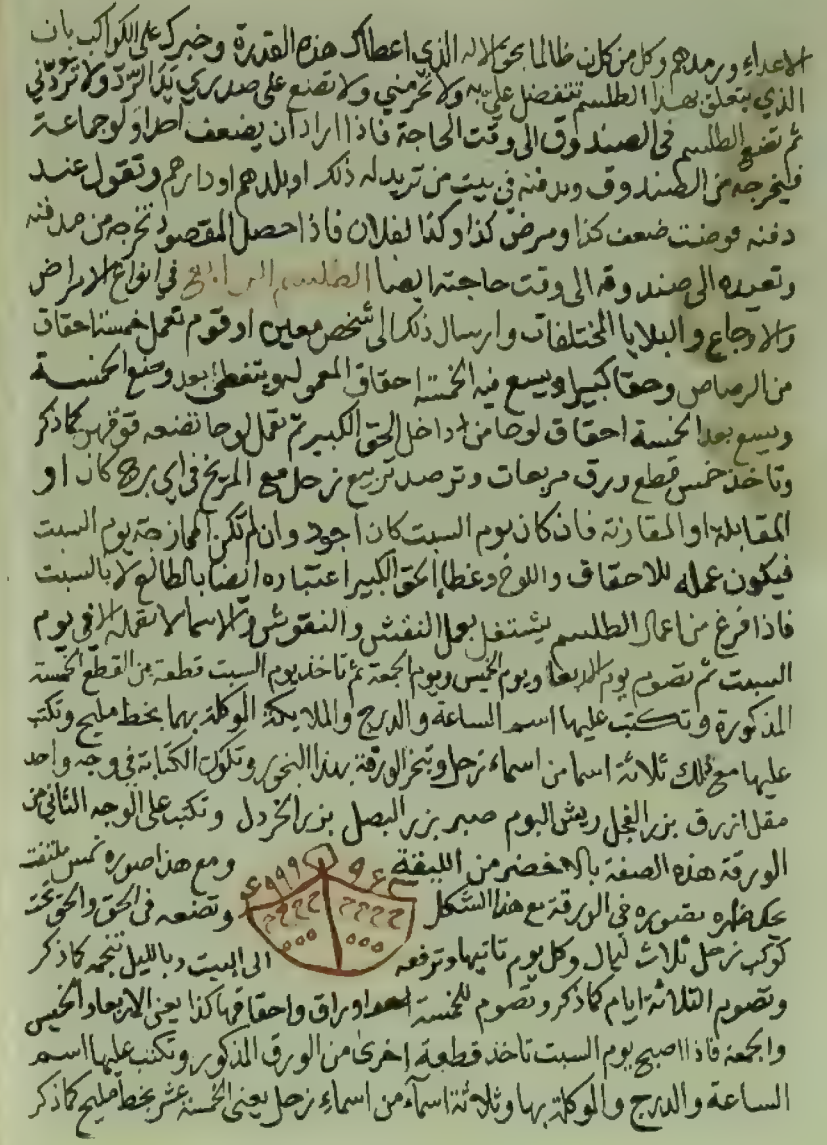 الاعداء ورمدهم وكل من كان ظالما بحق الاله الذي اعطاك هذه القدرة وخبرك على الكواكب بان
الذي يتعلق بهذا الطلسم تتفضل علي به ولا تحرمني ولا تضع على صدري يد الرد ولا تردني
ثم تضع الطلسم في الصندوق الى وقت الحاجة فاذا اراد ان يضعف احدا او لجماعة
فيخرجه من الصندوق ويدفنه في بيت من تريد له ذلك او بلدهم او دارهم وتقول عند
دفنه فوضت ضعف كذا ومرض كذا وكذا لفلان فاذا حصل المقصود تخرجه من مدفنه
وتعيده الى صندوقه الى وقت حاجته ايضا الطلسم الرابع في انواع الامراض
والاوجاع والبلايا المختلفات وارسال ذلك الى شخص معين او قوم تعمل خمسة احقاق
من الرصاص وحقا كبيرا ويسع فيه الخمسة احقاق المعموله ويتغطى بعد وضع الخمسة
ويسع بعد الخمسة احقاق لوحا من داخل الحق الكبير ثم تعمل لوحا تضعه فوقهن كما ذكر
وتاخذ خمس قطع ورق مربعات وترصد تربيع زحل مع المريخ في اي برج كان او
المقابلة او المقارنة فان كان يوم السبت كان اجود وان لم تكن الممازجة يوم السبت
فيكون عمله للاحقاق واللوح وغطا الحق الكبير اعتباره ايضا بالطالع لا بالسبت
فاذا فرغ من اعمال الطلسم يشتغل بعمل النقش والنقوش والاسما لا تعمله الا في يوم
السبت ثم تصوم يوم الاربعا ويوم الخميس ويوم الجمعة ثم تاخذ يوم السبت قطعة من القطع الخمسة
المذكورة وتكتب عليها اسم الساعة والدرج والملايكة الموكلة بهما بخط مليح وتكتب
عليها مع ذلك ثلاثة اسما من اسماء زحل وتبخر الورقة بهذا البخور وتكون الكتابة في وجه واحد
مقل ازرق بزر الفجل ريش البوم صبر بزر البصل بزر الخردل وتكتب على الوجه الثاني من
الورقة هذه الصفة بالاخضر من الليقة ومع هذا صورة شمس ملتفت
يحك ظهره بصوره في الورقة مع هذا الشكل وتضعه في الحق والحق تحت
كوكب زحل ثلاث ليال وكل يوم تاتيها وترفعه الى البيت وبالليل تنجمه كما ذكر
وتصوم الثلاثة ايام كما ذكر وتصوم للخمسة اوراق واحقاقها كذا يعني الاربعا والخميس
والجمعة فاذا اصبح يوم السبت تاخذ قطعة اخرى من الورق المذكور وتكتب عليها اسم
الساعة والدرج والموكلة بها وثلاثة اسماء من اسماء زحل يعني الخمسة عشر بخط مليح كما ذكر